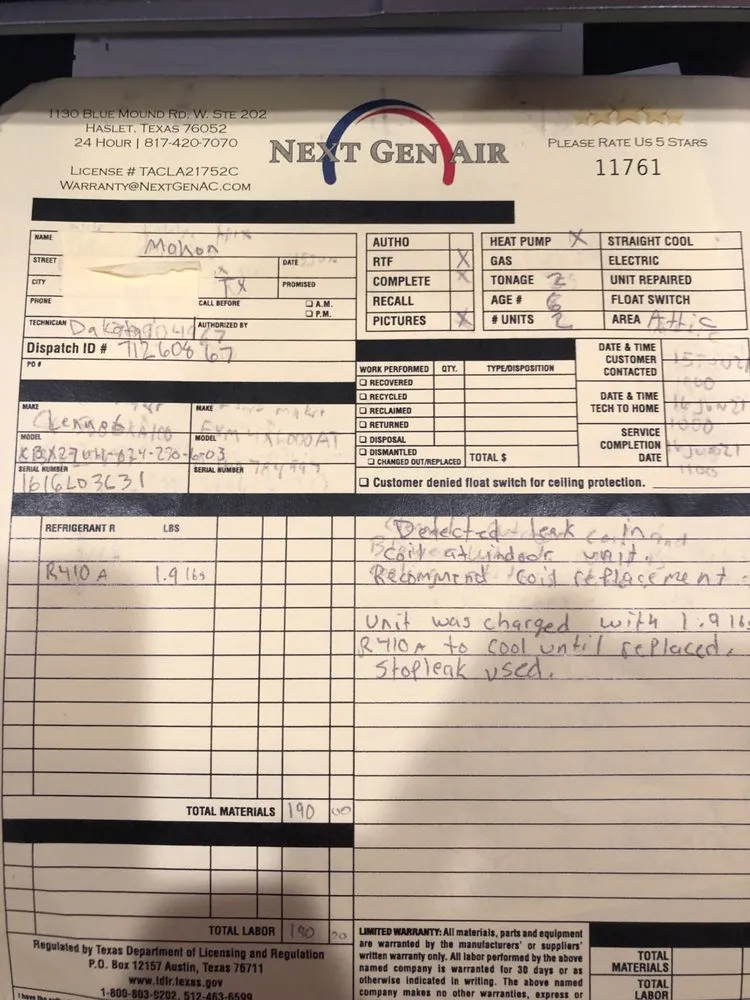 1130 BLUE MOUND RD. W. STE 202
HASLET, TEXAS 76052
24 HOUR | 817-420-7070
LICENSE # TACLA21752C
WARRANTY@NEXTGENAC.COM
NEXT GEN AIR
PLEASE RATE US 5 STARS
11761
NAME Mohon
STREET DATE
CITY TX PROMISED
PHONE CALL BEFORE ☐ A.M.
☐ P.M.
TECHNICIAN Dakota AUTHORIZED BY
Dispatch ID # 71260867
PO #
AUTHO
RTF X
COMPLETE X
RECALL
PICTURES X
HEAT PUMP X STRAIGHT COOL
GAS ELECTRIC
TONAGE 2 UNIT REPAIRED
AGE # 6 FLOAT SWITCH
# UNITS 2 AREA Attic
WORK PERFORMED QTY. TYPE/DISPOSITION
☐ RECOVERED
☐ RECYCLED
☐ RECLAIMED
☐ RETURNED
☐ DISPOSAL
☐ DISMANTLED
☐ CHANGED OUT/REPLACED TOTAL $
DATE & TIME
CUSTOMER
CONTACTED
DATE & TIME
TECH TO HOME
16 Jun 21
SERVICE
COMPLETION
DATE
16 Jun 21
1100
MAKE MAKE
MODEL MODEL
SERIAL NUMBER SERIAL NUMBER
1616L03631
☐ Customer denied float switch for ceiling protection.
REFRIGERANT R LBS
R410A 1.9 lbs
Detected leak
coil at indoor unit.
Recommend coil replacement
Unit was charged with 1.9 lbs
R410A to cool until replaced.
Stopleak used.
TOTAL MATERIALS 190 00
TOTAL LABOR 190 00
Regulated by Texas Department of Licensing and Regulation
P.O. Box 12157 Austin, Texas 78711
www.tdlr.texas.gov
1-800-803-9202, 512-463-6599
LIMITED WARRANTY: All materials, parts and equipment
are warranted by the manufacturers' or suppliers'
written warranty only. All labor performed by the above
named company is warranted for 30 days or as
otherwise indicated in writing. The above named
company makes no other warranties, express or
TOTAL
MATERIALS
TOTAL
LABOR